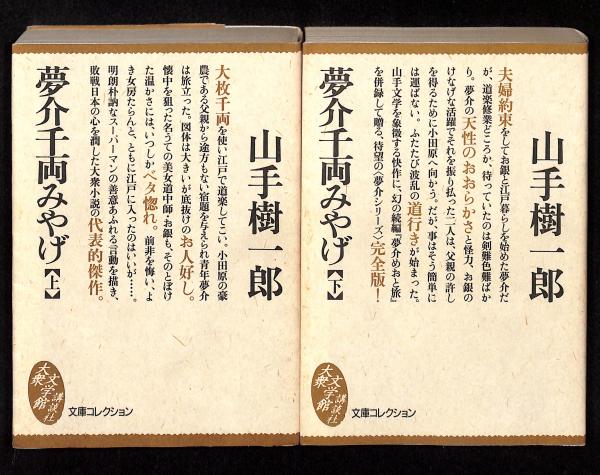 山手樹一郎
大枚千両を使い江戸で道楽してこい。小田原の豪
農である父親から途方もない宿題を与えられ青年夢介
は旅立った。図体は大きいが底抜けのお人好し。
懐中を狙った名うての美女道中師・お銀も、そのとぼけ
た温かさにはいつしかベタ惚れ。前非を悔い、よ
き女房たらんと、ともに江戸に入ったのはいいが……。
明朗朴訥なスーパーマンの善意あふれる言動を描き、
敗戦日本の心を潤した大衆小説の代表的傑作。
夢介千両みやげ【上】
大衆文学館
講談社
文庫コレクション
山手樹一郎
夫婦約束をしてお銀と江戸暮らしを始めた夢介だ
が、道楽修業どころか、待っていたのは剣難色難ばか
り。夢介の天性のおおらかさと怪力、お銀の
けなげな活躍でそれを振り払った二人は、父親の許し
を得るために小田原へ向かう。だが、事はそう簡単に
は運ばない。ふたたび波乱の道行きが始まった。
山手文学を象徴する快作に、幻の続編『夢介めおと旅』
を併録して贈る、待望の〈夢介シリーズ〉完全版！
夢介千両みやげ【下】
大衆文学館
講談社
文庫コレクション